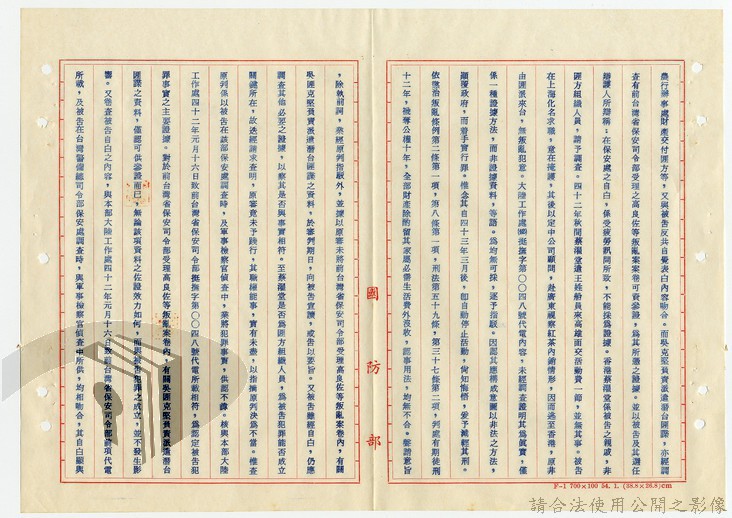 農行辦事處財產交付匪方等，又與被告反共自覺表白內容吻合。而吳匪克堅員責派遣潛台匪諜，亦經調
查有前台灣省保安司令部受理之高良佐等叛亂案卷可資參證，為其所憑之證據。並以被告及其選任
辯護人所辯稱：在保安處之自白，係受疲勞訊問所致，不能採為證據。香港蔡濯堂係被告之親戚，非
匪方組織人員，請予調查。四十二年秋間蔡濯堂遣王姓船員來高雄面交活動費一節，並無其事。被告
在上海化名求職，意在掩護，其後以定中公司顧問，赴廣東視察紅茶內銷情形，因而逃至香港，非
由匪派來台，無叛亂犯意。大陸工作處㈣挺撫字第〇〇四八號代電內容，未經調查證明其為眞實，僅
係一種證據方法，而非證據資料，等語。為均無可採，逐予指駁。因認其應構成意圖以非法之方法，
顛覆政府，而着手實行罪。惟念其自四十三年三月後，即自動停止活動，尙知悔悟，爰予減輕其刑。
依懲治叛亂條例第二條第一項，第八條第一項，刑法第五十九條，第三十七條第二項，判處有期徒刑
十二年，褫奪公權十年，全部財產除酌留其家屬必需生活費外沒收，認事用法，均無不合。聲請意旨
，除執前詞，業經原判指駁外，並據以原審未將前台灣省保安司令部受理高良佐等叛亂案卷內，有關
吳匪克堅員責派遣潛台匪諜之資料，於審判期日，向被告宣讀，或告以要旨。又被告雖經自白，仍應
調查其他必要之證據，以察其是否與事實相符。至蔡濯堂是否為匪方組織人員，為被告犯罪能否成立
關鍵所在，故迭經請求查明，原審竟未予踐行，其職權能事，實有未盡，以指摘原判決為不當。惟查
原判係以被告在該部保安處調查時，及軍事檢察官偵查中，業將犯罪事實，供認不諱。核與本部大陸
工作處四十二年元月十六日致前台灣省保安司令部挺撫字第〇〇四八號代電所載相符，為認定被告犯
罪事實之主要證據。對於前台灣省保安司令部受理高良佐等叛亂案卷內，有關吳匪克堅員責派遣潛台
匪諜之資料，僅認可供參證而已，無論該項資料之佐證效力如何，而與被告犯罪之成立，並不發生影
響。又卷查被告自白之內容，與本部大陸工作處四十二年元月十六日致前台灣省保安司令部前項代電
所載，及被告在台灣警備總司令部保安處調查時，與軍事檢察官偵查中所供，均相吻合，其自白顯與
國防部
F-1 700×100 54. 1. (38.8×26.8)cm
請合法使用公開之影像